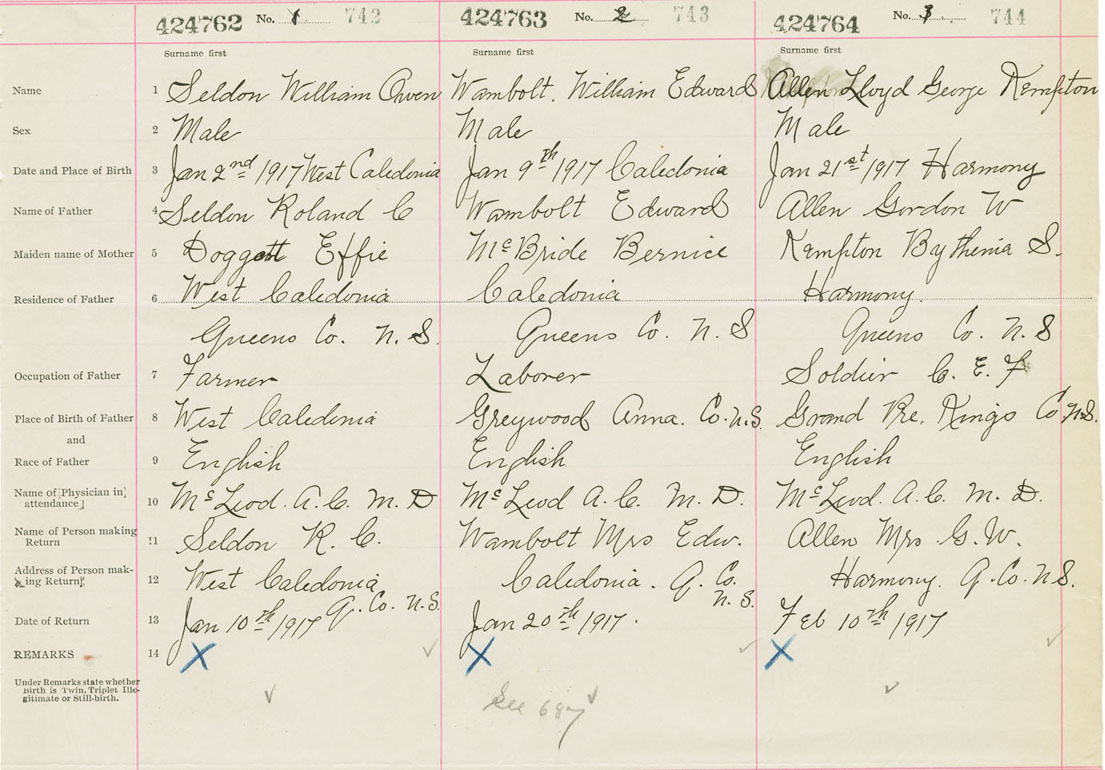 424762 No. 1 742 424763 No. 2 743 424764 No. 3 744
Surname first Surname first Surname first
Name 1 Seldon William Owen Wambolt. William Edward Allen Lloyd George Kempton
Sex 2 Male Male Male
Date and Place of Birth 3 Jan 2nd 1917 West Caledonia Jan 9th 1917 Caledonia Jan 21st 1917 Harmony
Name of Father 4 Seldon Roland C Wambolt Edward Allen Gordon W
Maiden name of Mother 5 Doggett Effie McBride Bernice Kempton Bythenia S.
Residence of Father 6 West Caledonia Caledonia Harmony.
Queens Co. N. S. Queens Co. N. S Queens Co. N. S
Occupation of Father 7 Farmer Laborer Soldier C. E. F
Place of Birth of Father 8 West Caledonia Greywood Anna. Co. N.S. Grand Pre. Kings Co N.S.
and
Race of Father 9 English English English
Name of [Physician in
attendance] 10 McLeod. A. C. M. D McLeod A. C. M. D. McLeod. A. C. M. D.
Name of Person making
Return 11 Seldon R. C. Wambolt Mrs Edw. Allen Mrs G. W.
Address of Person mak-
ing Return 12 West Caledonia Caledonia. Q. Co. Harmony. Q. Co. N S.
Q. Co. N.S. N. S.
Date of Return 13 Jan 10th 1917 Jan 20th 1917. Feb 10th 1917
REMARKS 14 X X X
Under Remarks state whether
Birth is Twin, Triplet Ille-
gitimate or Still-birth.
See 687